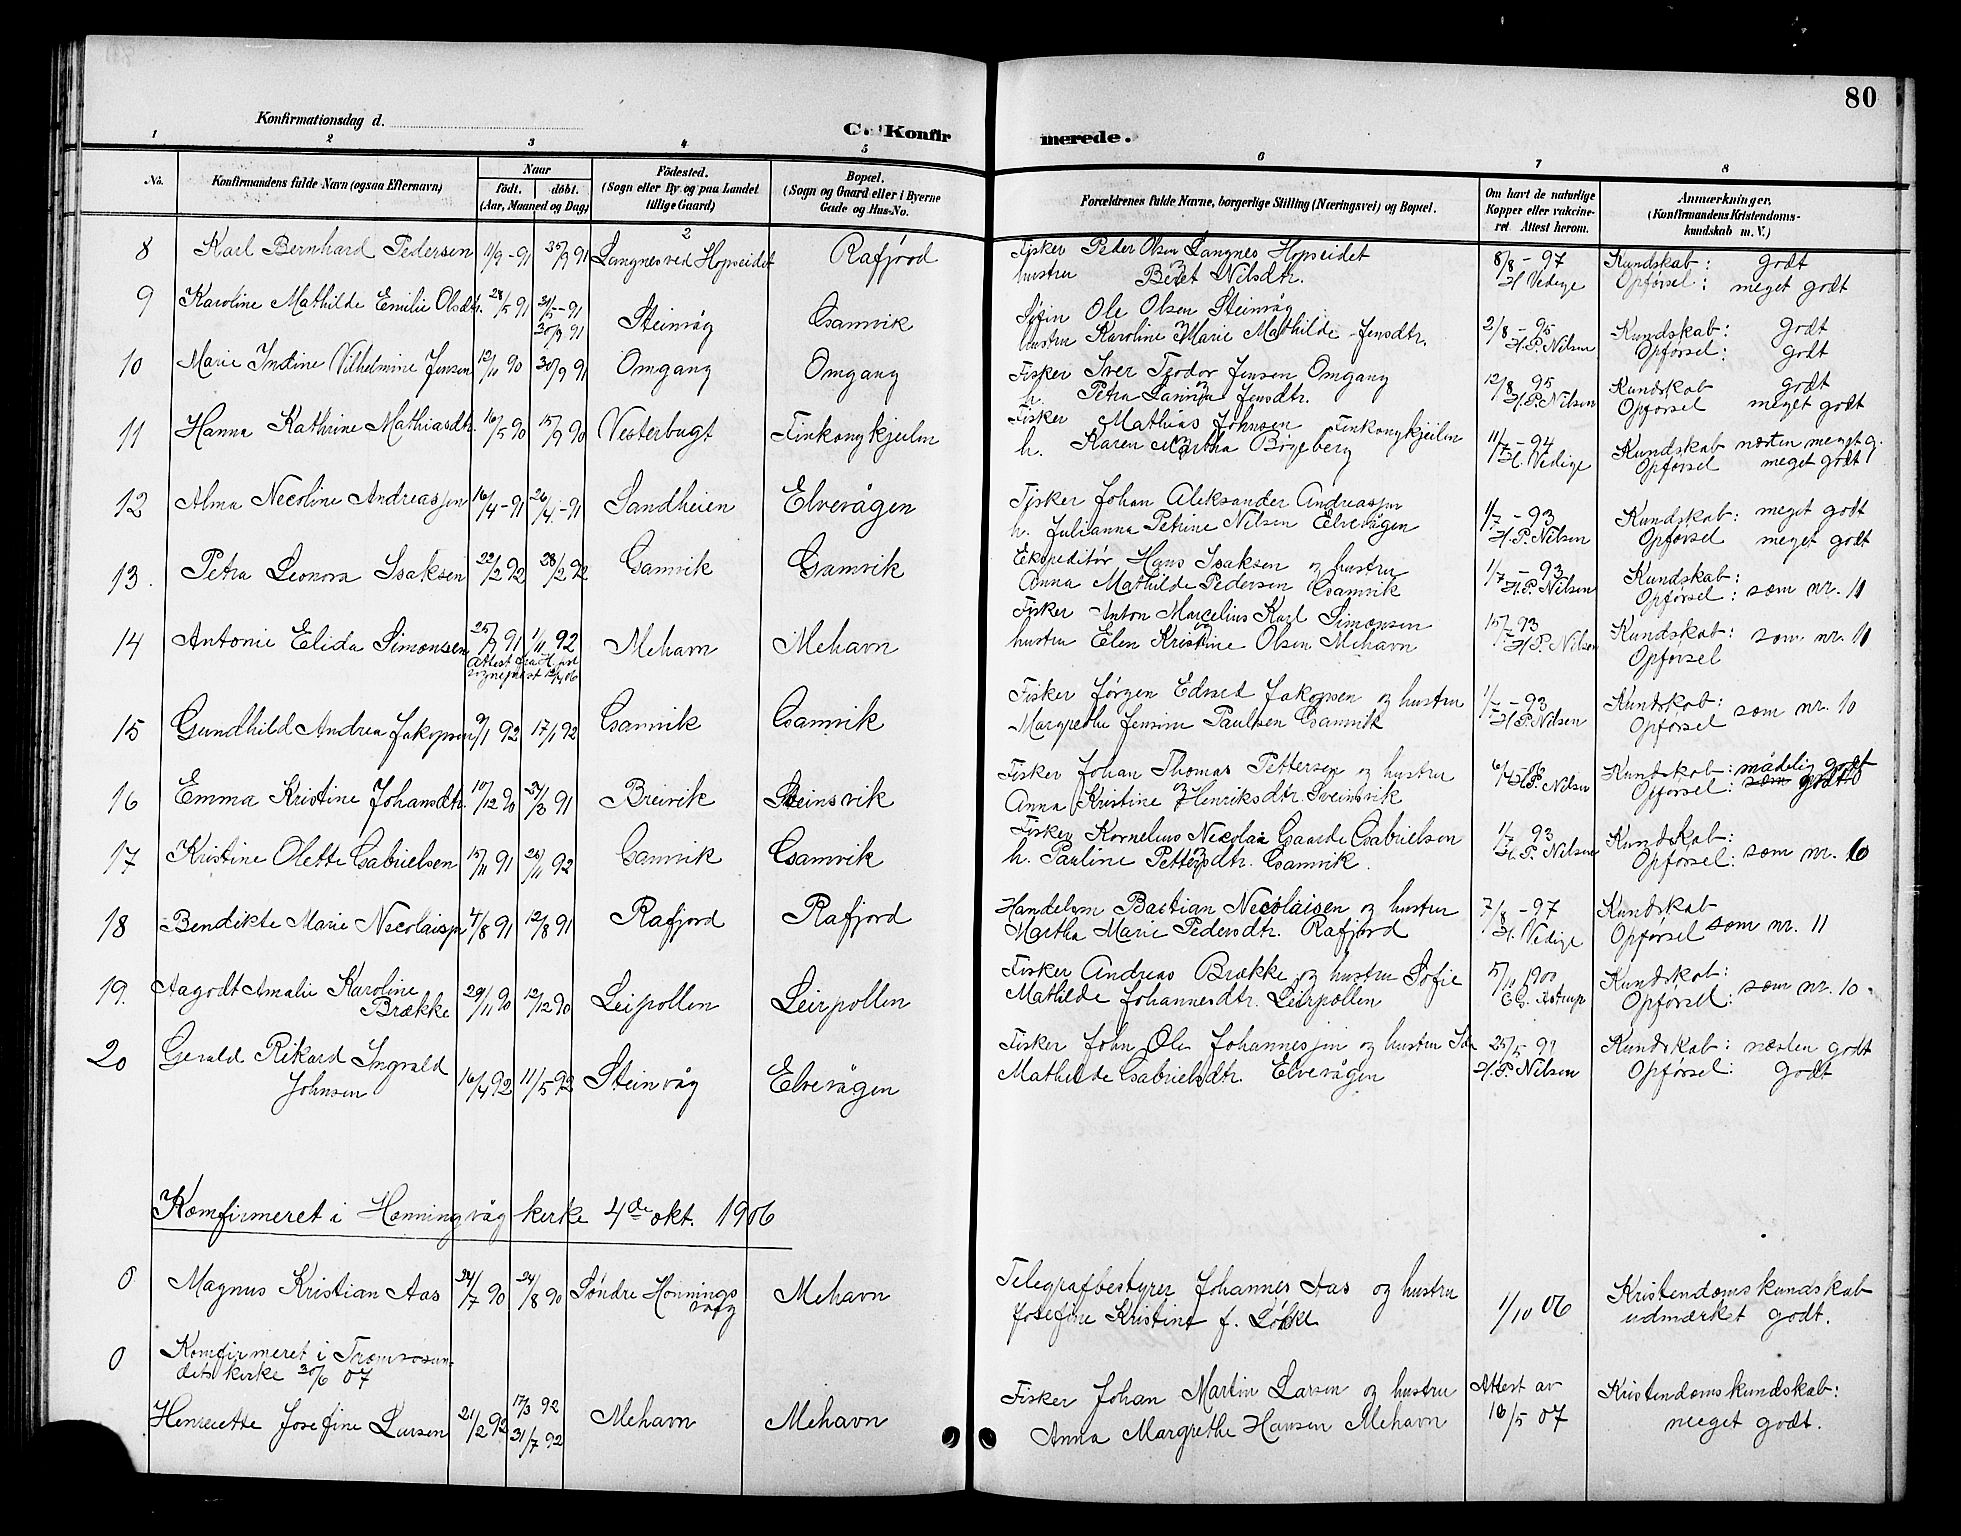 80
Konfirmationsdag d.
C. Konfirmerede.
1 2 3 4 5 6 7 8
No. Konfirmandens fulde Navn (ogsaa Efternavn) Naar født. døbt. (Aar, Maaned og Dag) Fødested. (Sogn eller By og paa Landet tillige Gaard) Bopæl. (Sogn og Gaard eller i Byerne Gade og Hus-No. Forældrenes fulde Navne, borgerlige Stilling (Næringsvei) og Bopæl. Om havt de naturlige Kopper eller vakcineret Attest herom. Anmærkninger. (Konfirmandens Kristendomskundskab m. V.)
8 Karl Bernhard Pedersen 11/9-91 Langnes ved Hopseidet Rafjord Fisker Peder Olsen Langnes Hopseidet 8/8-97 Kundskab: godt
hustru Beret Nilsdtr. H. Vedige Opførsel: meget godt
9 Karoline Mathilde Emilie Olsdtr. 28/5 91 31/5-91 Steinvåg Gamvik Ole Olsen Steinvåg 2/8-95 Kundskab: godt
hustru Karoline Marie Mathilde Jensdtr. H.P. Nilsen Opførsel: godt
10 Marie Justine Vilhelmine Jensen 12/11 90 30/9 91 Omgang Omgang Fisker Iver Teodor Jensen Omgang 12/8 95 Kundskab godt
h. Petra Jensdtr. H.P. Nilsen Opførsel meget godt
11 Hanna Kathrine Mathiasdtr. 16/5 90 15/9 90 Vesterbugt Finkongkjeilen Fisker Mathias Johnsen Finkongkjeilen 11/7-94 Kundskab næsten meget g.
h. Karen Martha Bogeberg H. Vedige Opførsel meget godt
12 Alma Necoline Andreassen 16/4-91 26/4-91 Sandheien Elvevågen Fisker Johan Aleksander Andreassen 1/7-93 Kundskab: meget godt
h. Julianna Petrine Nilsen Elvevågen H.P. Nilsen Opførsel meget godt
13. Petra Leonora Isaksen 22/2 92 28/2 92 Gamvik Gamvik Ekspeditør Hans Isaksen og hustru 1/7-93 Kundskab:
Anna Mathilde Pedersen Gamvik H.P. Nilsen Opførsel: som nr. 11
14 Antonie Elida Simonsen 25/9 91 1/11 92 Mehavn Mehavn Fisker Anton Marcelius Karl Simonsen 15/7 93 Kundskab: som nr. 11
hustru Elen Kristine Olsen Mehavn H.P. Nilsen Opførsel
15 Gundhild Andrea Jakopsen 9/1 92 17/1 92 Gamvik Gamvik Fisker Jørgen Edvard Jakopsen og hustru 1/7-93 Kundskab: som nr. 10
Margrethe Jensine Paulsen Gamvik H.P. Nilsen Opførsel
16 Emma Kristine Johansdtr. 10/12 90 Breivik Steinsvik Fisker Johan Thomas Pettersen og hustru H.P. Nilsen Kundskab: mådelig godt
Anna Kristine Henriksdtr. Sveinsvik Opførsel: som godt
17 Kristine Olette Gabrielsen 15/11 91 Gamvik Gamvik Fisker Kornelius Necolai Gaarde Gabrielsen 1/7 93 Kundskab:
h. Pauline Pettersdtr. Gamvik. H.P. Nilsen Opførsel: som nr. 10
18 Bendikte Marie Necolaisen 4/8 91 12/8 91 Rafjord Rafjord Handelsm Bastian Necolaisen og hustru 7/8-97 Kundskab
Martha Marie Pedersdtr. Rafjord H. Vedige Opførsel som nr. 11
19. Aagodt Amalie Karoline Brække 29/11 90 12/12 90 Leirpollen Leirpollen Fisker Andreas Brække og hustru Sofie 5/11 1900 Kundskab:
Mathilde Johannesdtr. Leirpollen Astrup Opførsel: som nr. 10.
20 Gerald Rikard Ingvald Johnsen 16/4 92 11/5 92 Steinvåg Elvevågen Fisker John Ole Johannessen og hustru Ida 25/5-99 Kundskab: næsten godt
Mathilde Gabrielsdtr. Elvevågen H.P. Nilsen Opførsel: godt
Komfirmeret i Honningsvåg kirke 4de okt. 1906
0 Magnus Kristian Aas 24/7 90 24/8 90 Søndre Honningsvaag Mehavn Telegrafbestyrer Johannes Aas og hustru 1/10 06 Kristendomskundskab
Josefine Kristine f. Løkke udmærket godt.
0 Komfirmeret i Tromsøsundets kirke 30/6 07
Henriette Josefine Larsen 21/2 92 17/3 92 31/7 92 Mehavn Mehavn Fisker Johan Martin Larsen og hustru Attest av Kristendomskundskab:
Anna Margrethe Hansen Mehavn 16/5 07 meget godt.